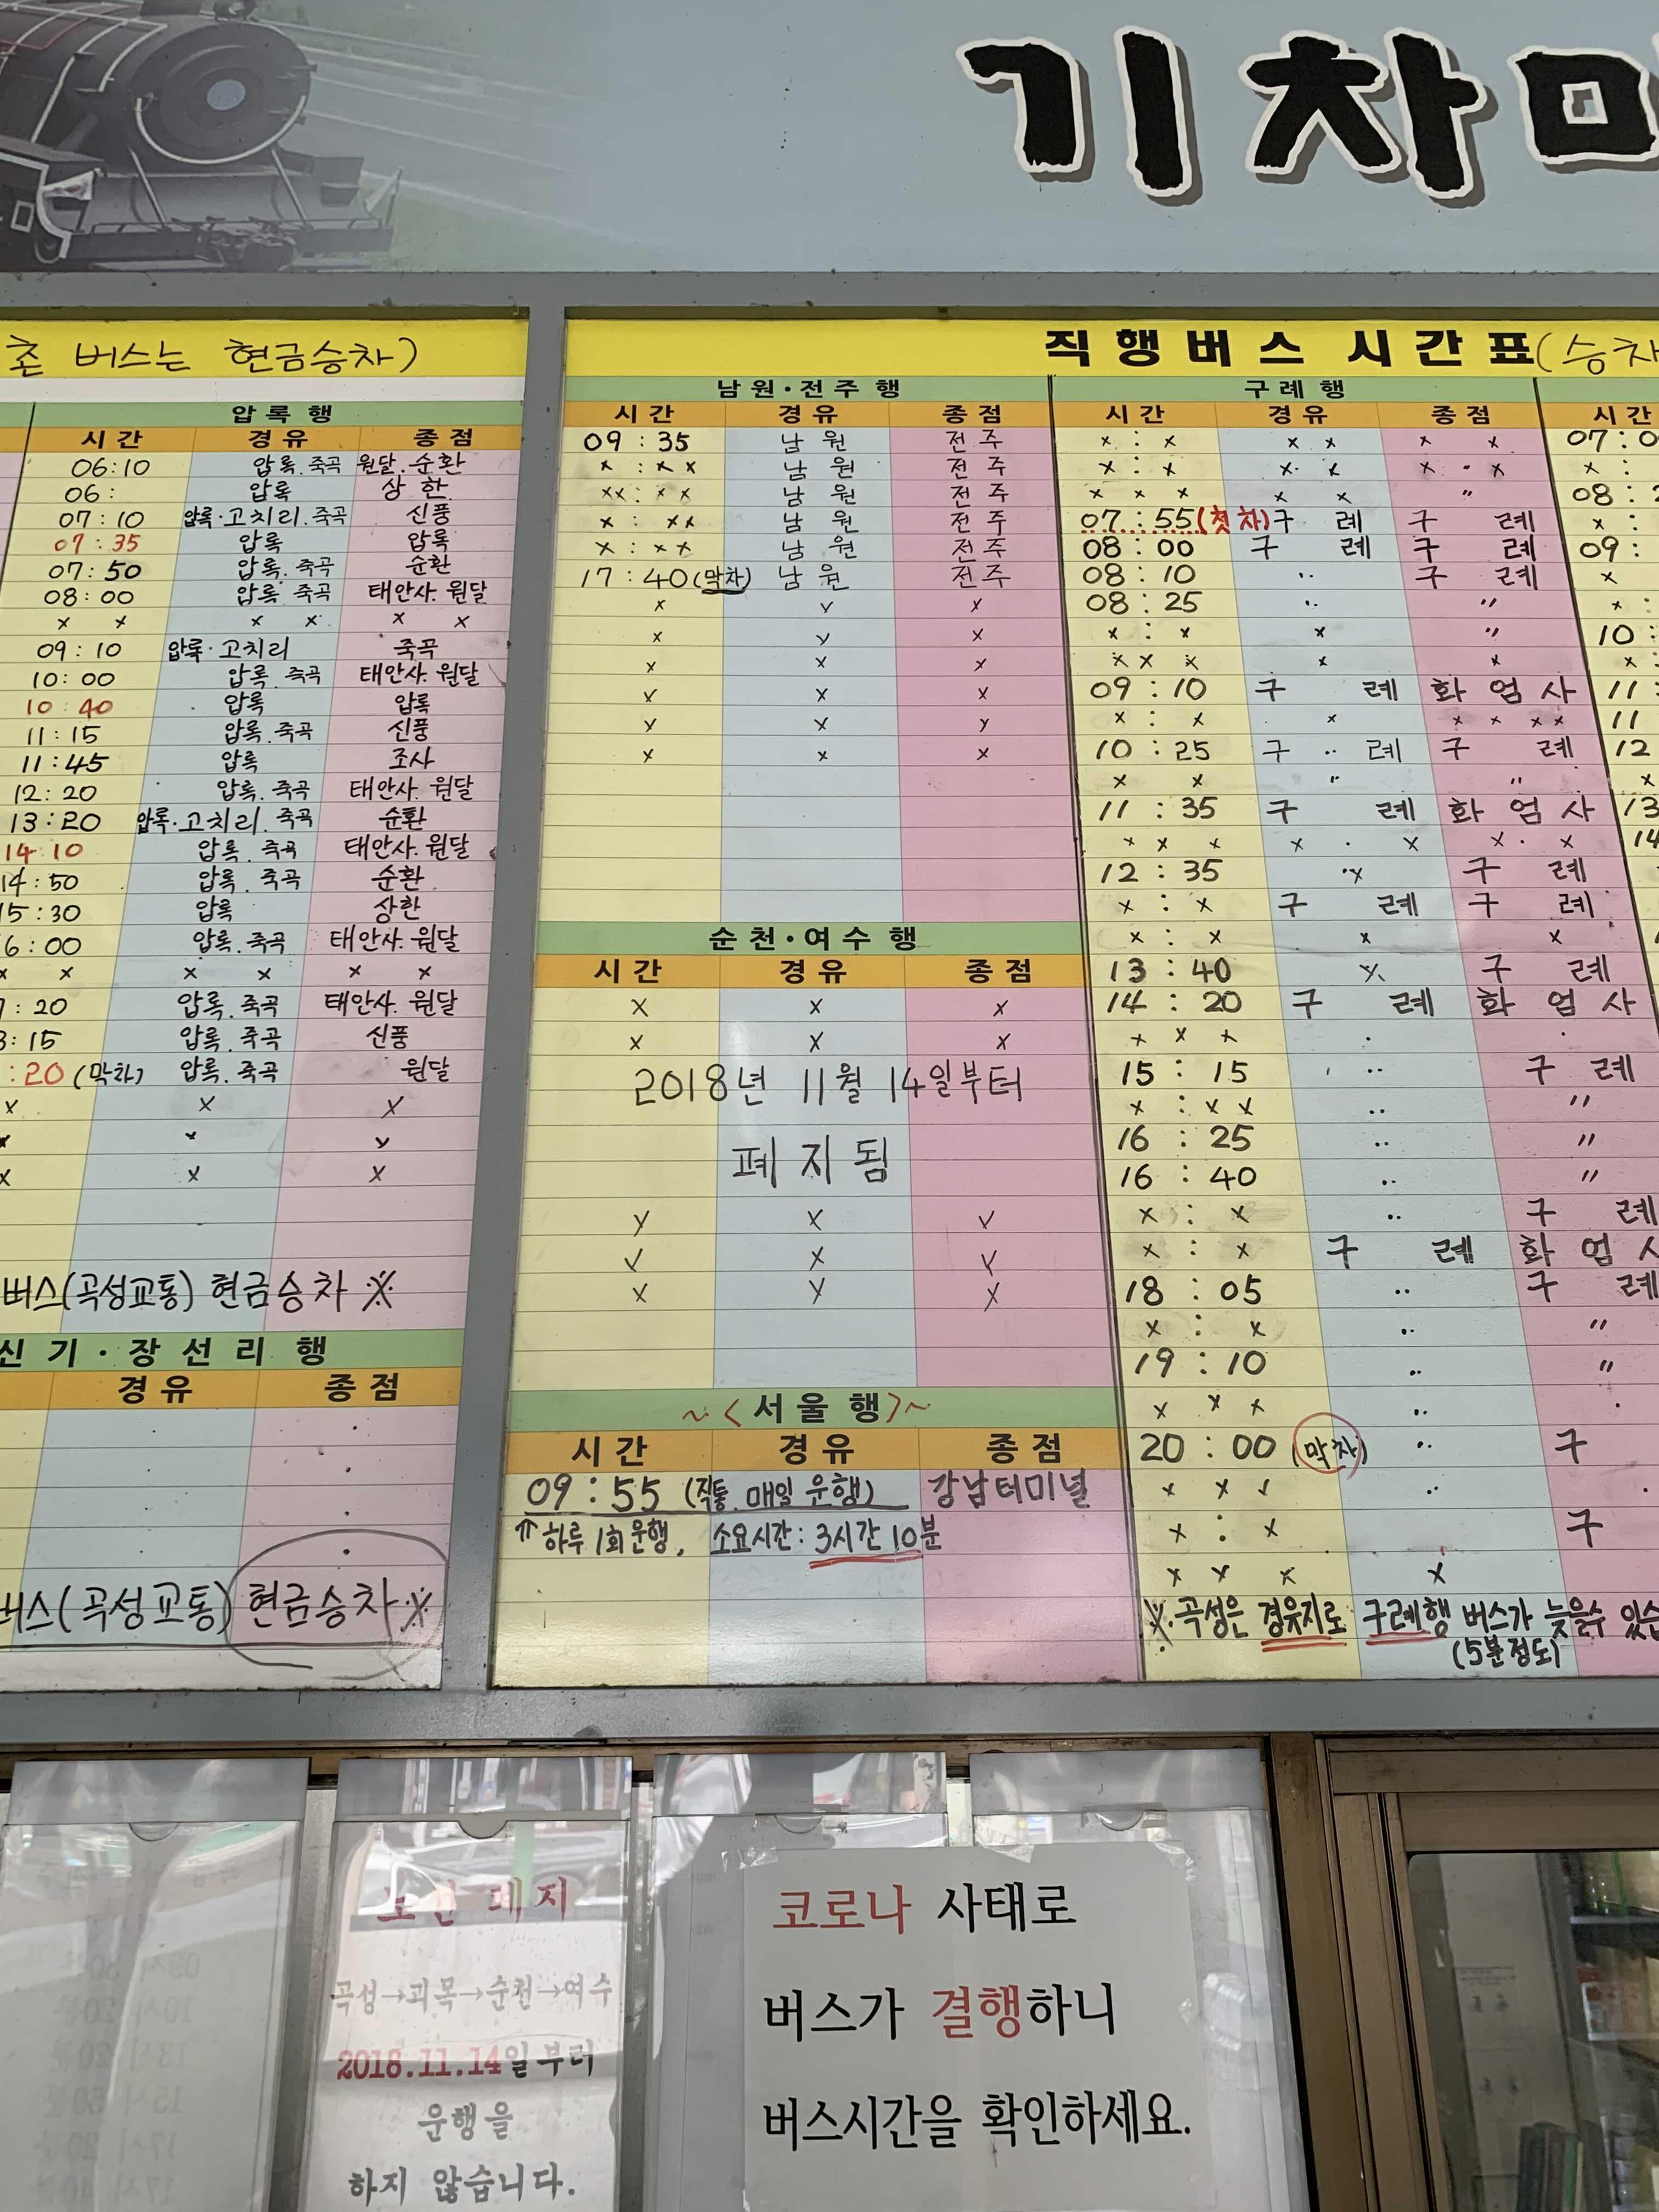 기차
촌 버스는 현금승차)
압록행
시간 경유 종점
06:10 압록.죽곡 원달.순환
06: 압록 상한
07:10 압록·고치리.죽곡 신풍
07:35 압록 압록
07:50 압록.죽곡 순환
08:00 압록.죽곡 태안사.원달
x x x x x x
09:10 압록·고치리 죽곡
10:00 압록.죽곡 태안사.원달
10:40 압록 압록
11:15 압록.죽곡 신풍
11:45 압록 조사
12:20 압록.죽곡 태안사.원달
13:20 압록·고치리.죽곡 순환
14:10 압록.죽곡 태안사.원달
14:50 압록.죽곡 순환
15:30 압록 상한
6:00 압록.죽곡 태안사.원달
x x x x x x
:20 압록.죽곡 태안사.원달
:15 압록.죽곡 신풍
:20 (막차) 압록.죽곡 원달
x x x
x x x
x x x
버스(곡성교통) 현금승차 ※
신기·장선리행
경유 종점
버스(곡성교통) 현금승차※
직행버스 시간표(승차
남원·전주행
시간 경유 종점
09:35 남원 전주
x:xx 남원 전주
xx:xx 남원 전주
x:xx 남원 전주
x:xx 남원 전주
17:40(막차) 남원 전주
x x x
x x x
x x x
x x x
x x x
x x x
순천·여수행
시간 경유 종점
x x x
x x x
2018년 11월 14일부터
폐지됨
x x x
x x x
x x x
~<서울행>~
시간 경유 종점
09:55 (직통.매일 운행) 강남터미널
⇑하루 1회운행, 소요시간: 3시간 10분
구례행
시간 경유 종점
x:x x x x x
x:x x x x x
x x x x x "
07:55(첫차) 구례 구례
08:00 구례 구례
08:10 .. 구례
08:25 .. "
x:x x "
x x x x x
09:10 구례 화엄사
x:x x x x x x
10:25 구..례 구례
x x " "
11:35 구례 화엄사
x x x x . x x . x
12:35 x 구례
x:x 구례 구례
x:x x x
13:40 x 구례
14:20 구례 화엄사
x x x . .
15:15 .. 구례
x:x x .. "
16:25 .. "
16:40 .. "
x:x .. 구례
x:x 구례 화엄
18:05 .. 구례
x:x .. "
19:10 .. "
x x x .. .
20:00 (막차) .. 구
x x x .. .
x:x 구
x x x x
※곡성은 경유지로 구례행 버스가 늦을수 있습
(5분정도)
시간
07:0
x:
08:
x:
09:
x
x:
10:
x:
11:
11
12
x
13
14
노선폐지
곡성→괴목→순천→여수
2018.11.14일부터
운행을
하지 않습니다.
코로나 사태로
버스가 결행하니
버스시간을 확인하세요.